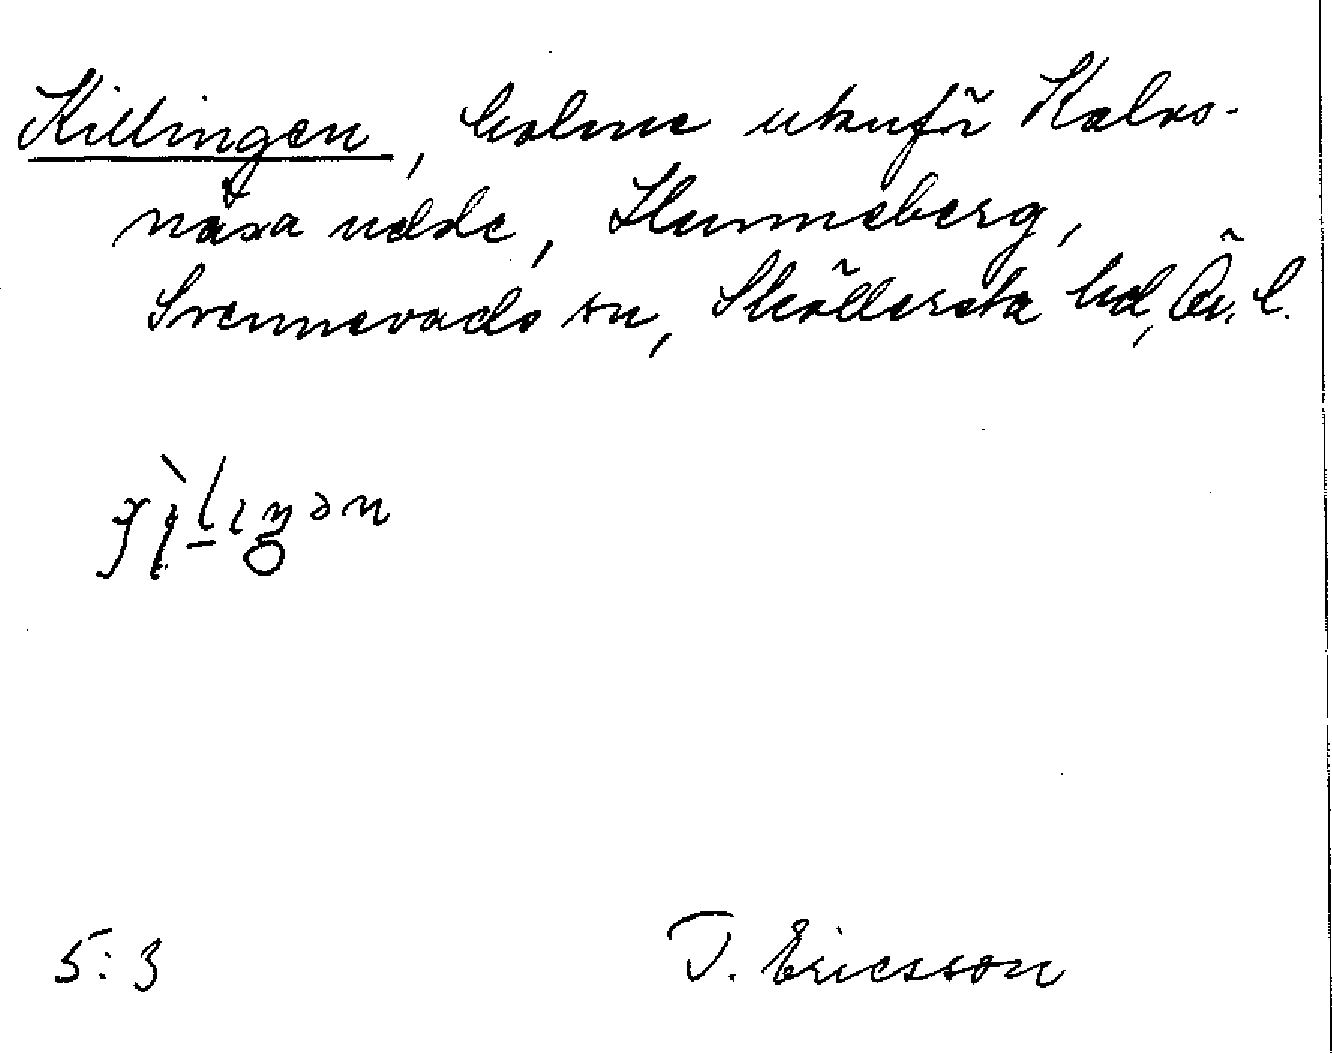 Killingen, holme utanför Kalvs-
näsa udde, Hunneberg,
Svennevads sn, Sköllersta hd, Ör. l.
5:3 T. Ericsson